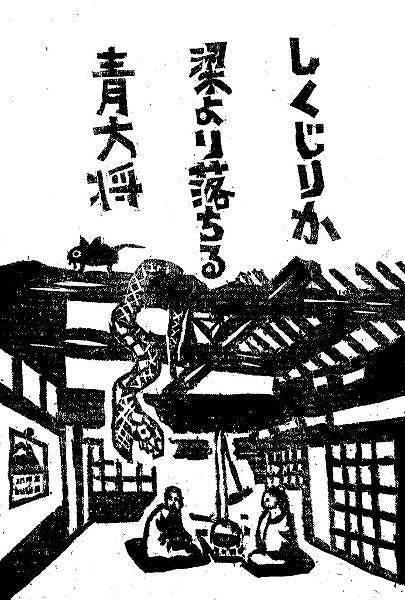 しくじりか
梁より落ちる
青大将